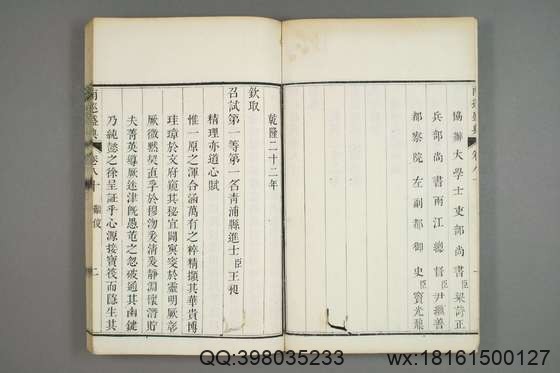 南巡盛典 卷八十
協辦大學士吏部尚書臣梁詩正
兵部尚書兩江總督臣尹繼善
都察院左副都御史臣竇光鼐
乾隆二十二年
欽取
召試第一等第一名青浦縣進士臣王昶
精理亦道心賦
惟一原之渾合涵萬有之粹精擷其華貴博
珪璋於文府窺其秘宜闢窔奧於靈明厥彰
厥微黙契直孚於穆沕爰清爰靜淵懷潛貯
夫菁英導厥迷津旣愚蒙之忽破通其鍵
乃純懿之徐呈証乎心源接寳筏而隱生其
南巡盛典 卷八十 二
QQ:398035233
wx:18161500127